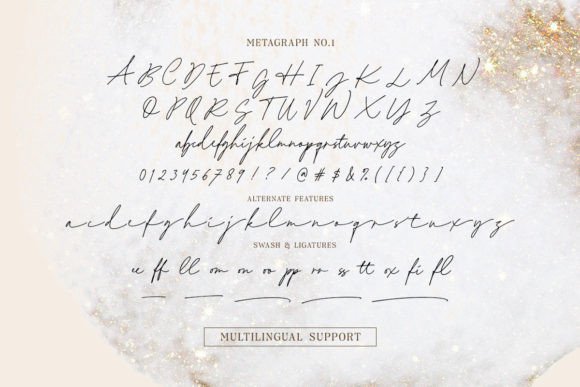 METAGRAPH NO.1
A B C D E F G H I J K L M N
O P Q R S T U V W X Y Z
abcdefghijklmnopqrstuvwxyz
0 1 2 3 4 5 6 7 8 9 ! ? / @ # $ & % ( [ { ) } ]
ALTERNATE FEATURES
abcdefghijklmnopqrstuvwxyz
SWASH & LIGATURES
ee ff ll om on oo pp ro ss tt ox fi fl
MULTILINGUAL SUPPORT